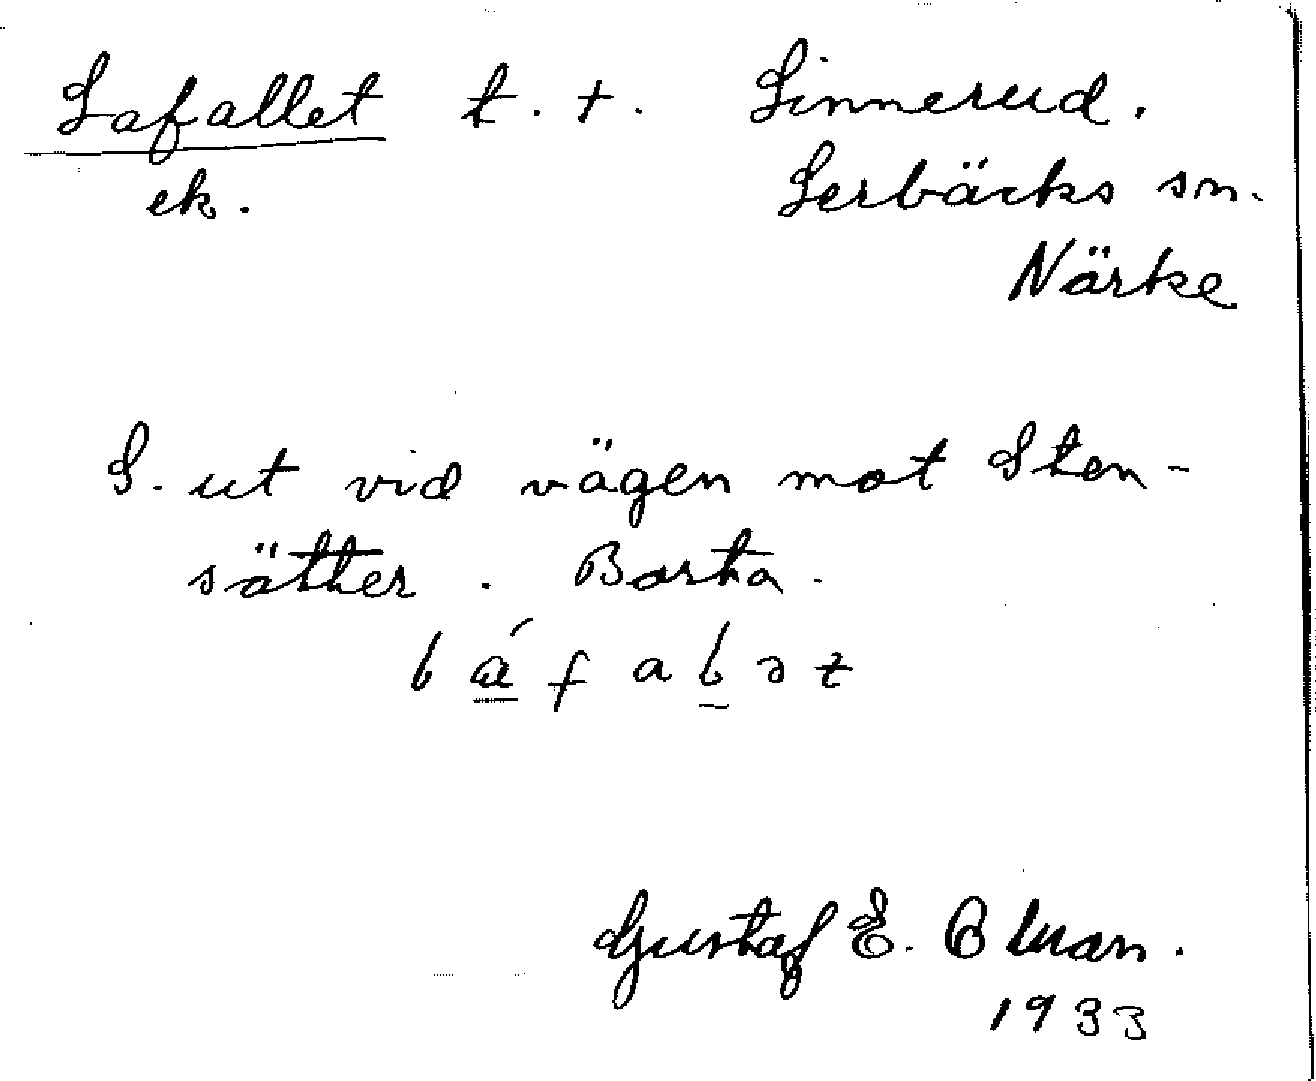 Lafallet t. +. Linnerud.
ek. Lerbäcks sn.
Närke
S. ut vid vägen mot Sten-
sätter. Borta.
Gustaf E. Olman.
1933